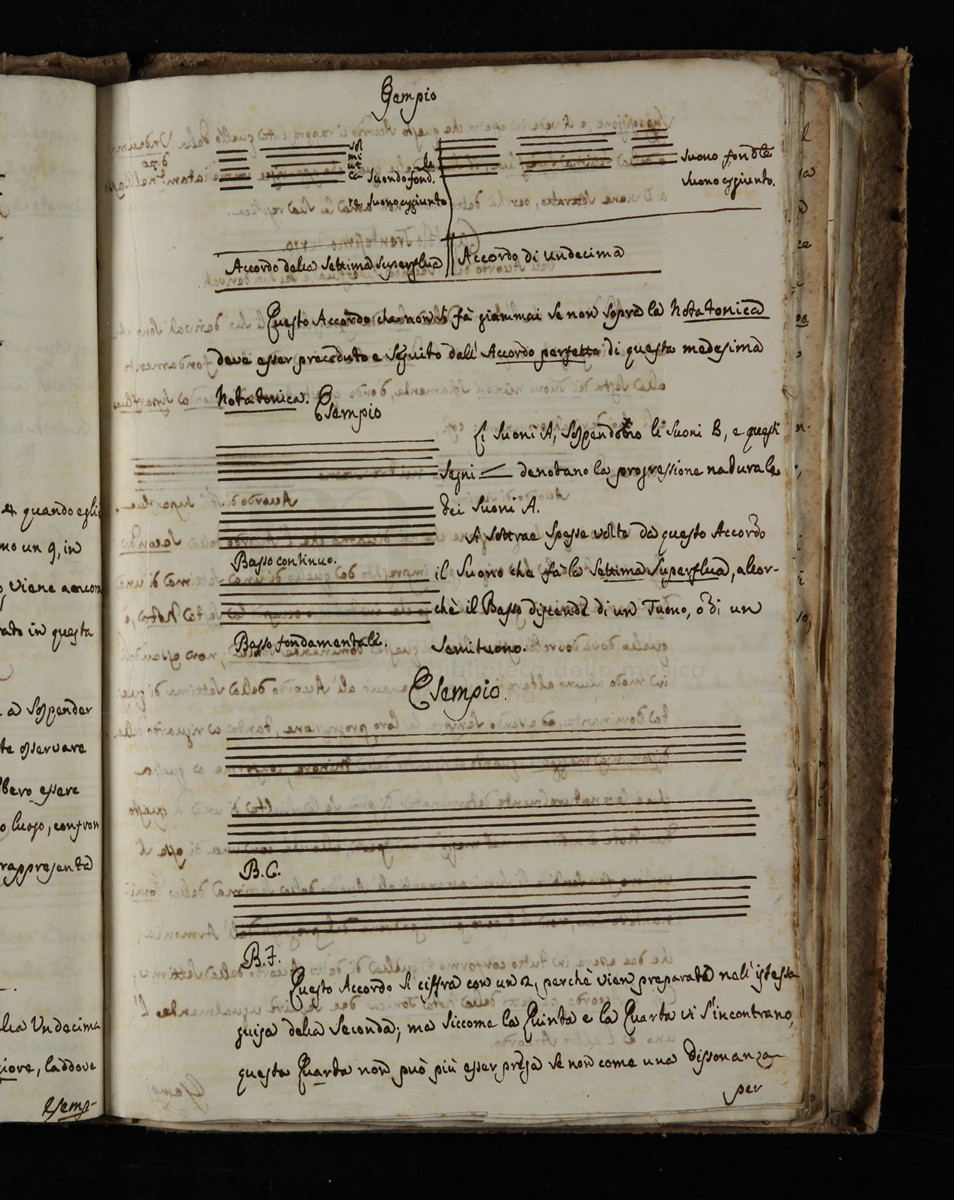 Esempio
sol
mi
ut
la
Suono fond.
re Suono aggiunto
Suono fond.le
Suono aggiunto.
Accordo della Settima Superflua
Accordo di Undecima
Questo Accordo che non si fà giammai se non sopra la Notatonica
deve esser preceduto e seguito dall' Accordo perfetto di questa medesima
Notatonica. Esempio
Li Suoni A, Sospendono li Suoni B, e questi
Segni denotano la progressione naturale
dei Suoni A.
A Sottrae spesse volte da questo Accordo
Basso continuo.
il Suono che fà la Settima Superflua, alcor-
chè il Basso discende di un Tuono, o di un
Basso fondamentale.
Semituono.
Esempio.
B. C.
B. F.
Questo Accordo si ciffra con un 2, perchè vien preparata nell' istessa
guisa della Seconda; ma siccome la Quinta e la Quarta vi s'incontrano,
questa Quarta non può più esser presa se non come una dissonanza
per
4 quando egli
mo un 9, in
Viene accom
rato in questa
a Sospender
te osservare
bbero essere
luogo, conson
rappresenta
lla Undecima
giore, laddove
Esemp-